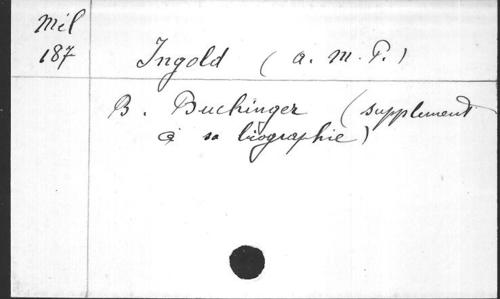 Mil
187
Ingold (A. M. P.)
B. Buchinger (supplement
à sa biographie)